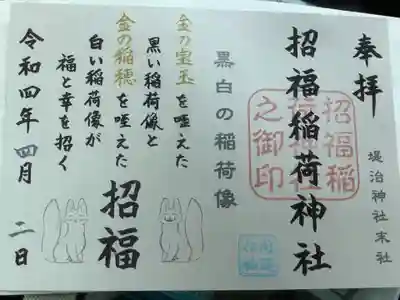 奉拝
堤治神社末社
招福稲荷神社
招福稲
荷神社
之御印
黒白の稲荷像
金の宝玉を咥えた
黒い稲荷像と
金の稲穂を咥えた
白い稲荷像が
福と幸を招く
招福
令和四年四月二日